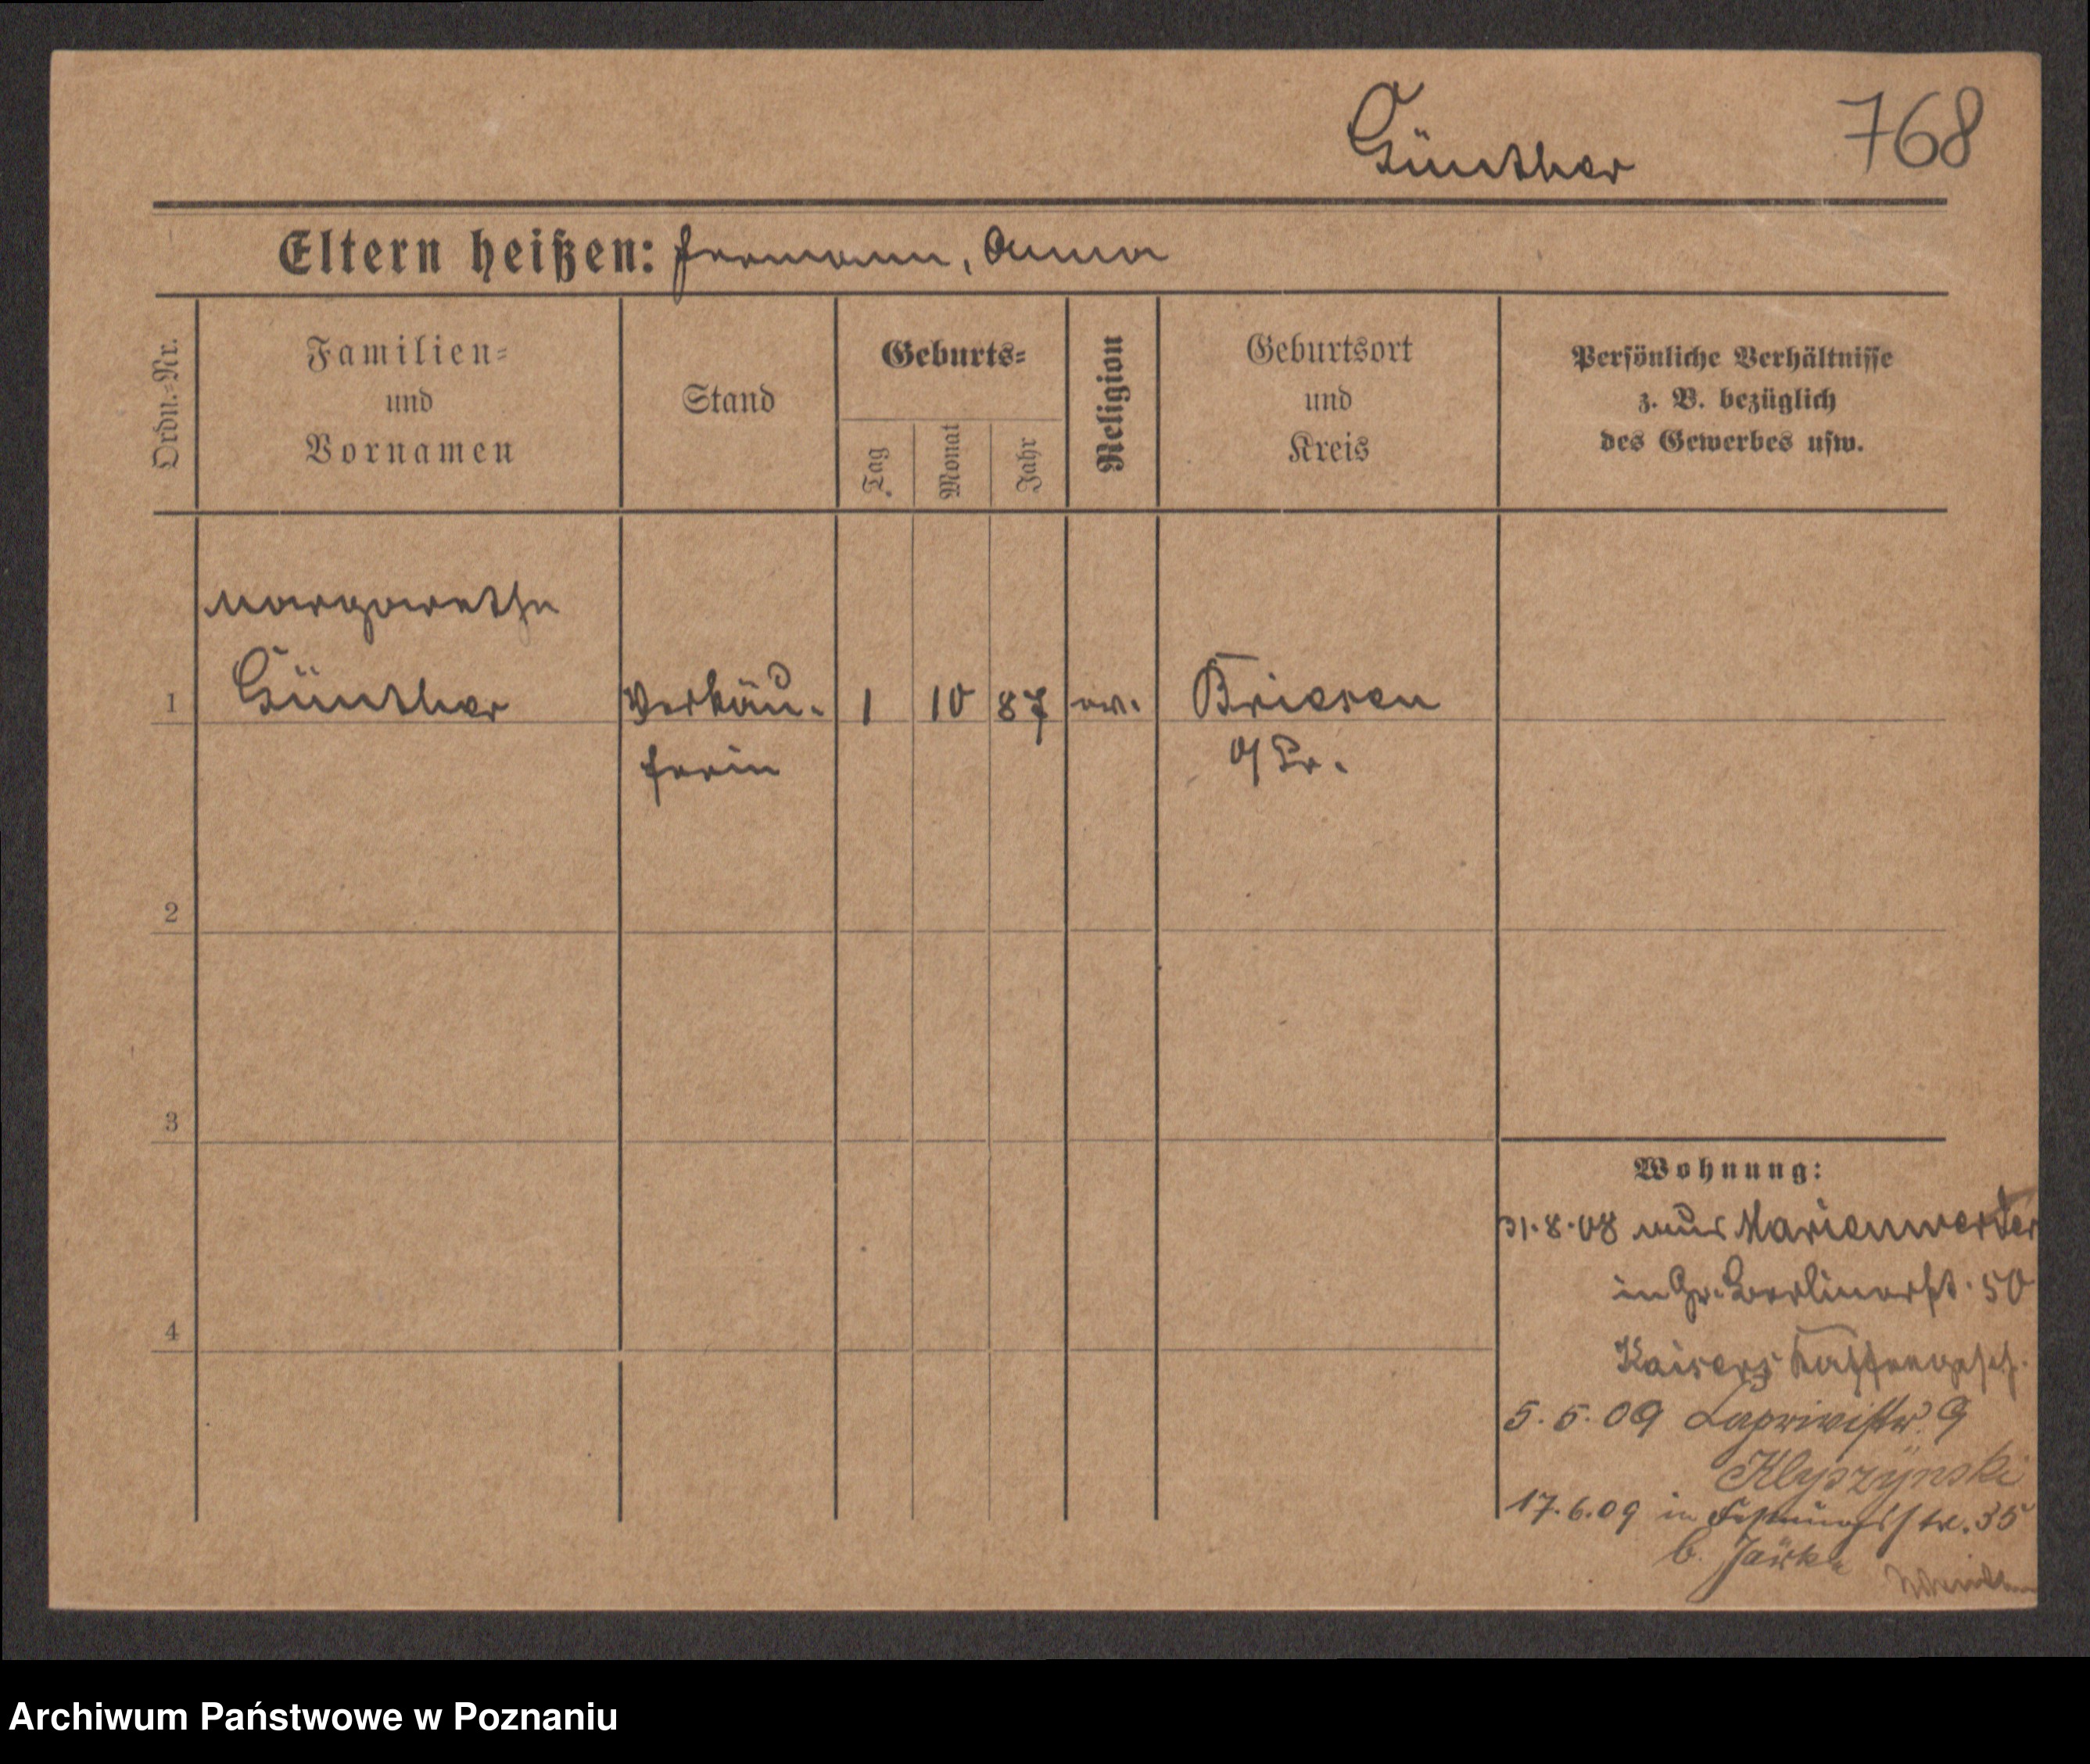 Günther 768
Eltern heißen: Hermann, Anna
Ordn.-Nr.
Familien-
und
Vornamen
Stand
Geburts-
Tag
Monat
Jahr
Religion
Geburtsort
und
Kreis
Persönliche Verhältnisse
z. B. bezüglich
des Gewerbes usw.
Margarethe
1 Günther Verkäu- 1 10 87 ev. Briesen
ferin W/Pr.
2
3
4
Wohnung:
31.8.08 aus Marienwerder
in Gr. Berlinerst. 50
Kaisers Kaffeegesch.
5.5.09 Caprivistr. 9
Klyszynski
17.6.09 in Festungsstr. 35
b. Jaŭke
Archiwum Państwowe w Poznaniu